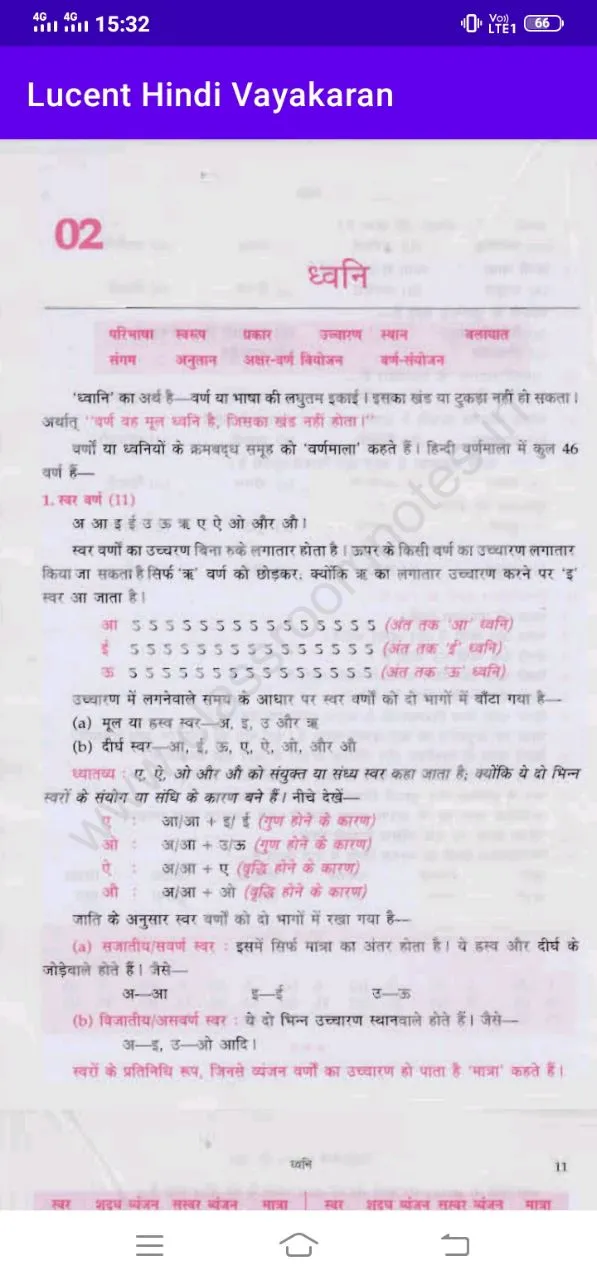 4G 4G 15:32 Vo)) LTE1 66
Lucent Hindi Vayakaran
02
ध्वनि
परिभाषा स्वरूप प्रकार उच्चारण स्थान बलाघात
संगम अनुतान अक्षर-वर्ण वियोजन वर्ण-संयोजन
'ध्वनि' का अर्थ है—वर्ण या भाषा की लघुतम इकाई। इसका खंड या टुकड़ा नहीं हो सकता।
अर्थात् "वर्ण वह मूल ध्वनि है, जिसका खंड नहीं होता।"
वर्णों या ध्वनियों के क्रमबद्ध समूह को 'वर्णमाला' कहते हैं। हिन्दी वर्णमाला में कुल 46
वर्ण हैं—
1. स्वर वर्ण (11)
अ आ इ ई उ ऊ ऋ ए ऐ ओ और औ।
स्वर वर्णों का उच्चरण बिना रुके लगातार होता है। ऊपर के किसी वर्ण का उच्चारण लगातार
किया जा सकता है सिर्फ 'ऋ' वर्ण को छोड़कर, क्योंकि ऋ का लगातार उच्चारण करने पर 'इ'
स्वर आ जाता है।
आ ऽ ऽ ऽ ऽ ऽ ऽ ऽ ऽ ऽ ऽ ऽ ऽ ऽ ऽ ऽ (अंत तक 'आ' ध्वनि)
ई ऽ ऽ ऽ ऽ ऽ ऽ ऽ ऽ ऽ ऽ ऽ ऽ ऽ ऽ ऽ (अंत तक 'ई' ध्वनि)
ऊ ऽ ऽ ऽ ऽ ऽ ऽ ऽ ऽ ऽ ऽ ऽ ऽ ऽ ऽ ऽ (अंत तक 'ऊ' ध्वनि)
उच्चारण में लगनेवाले समय के आधार पर स्वर वर्णों को दो भागों में बाँटा गया है—
(a) मूल या हस्व स्वर—अ, इ, उ और ऋ
(b) दीर्घ स्वर—आ, ई, ऊ, ए, ऐ, ओ, और औ
ध्यातव्य : ए, ऐ, ओ और औ को संयुक्त या संध्य स्वर कहा जाता है; क्योंकि ये दो भिन्न
स्वरों के संयोग या संधि के कारण बने हैं। नीचे देखें—
ए : आ/आ + इ/ ई (गुण होने के कारण)
ओ : अ/आ + उ/ऊ (गुण होने के कारण)
ऐ : अ/आ + ए (वृद्धि होने के कारण)
औ : अ/आ + ओ (वृद्धि होने के कारण)
जाति के अनुसार स्वर वर्णों को दो भागों में रखा गया है—
(a) सजातीय/सवर्ण स्वर : इसमें सिर्फ मात्रा का अंतर होता है। ये हस्व और दीर्घ के
जोड़ेवाले होते हैं। जैसे—
अ—आ इ—ई उ—ऊ
(b) विजातीय/असवर्ण स्वर : ये दो भिन्न उच्चारण स्थानवाले होते हैं। जैसे—
अ—इ, उ—ओ आदि।
स्वरों के प्रतिनिधि रूप, जिनसे व्यंजन वर्णों का उच्चारण हो पाता है 'मात्रा' कहते हैं।
ध्वनि 11
स्वर शुद्ध व्यंजन सस्वर व्यंजन मात्रा स्वर शुद्ध व्यंजन सस्वर व्यंजन मात्रा